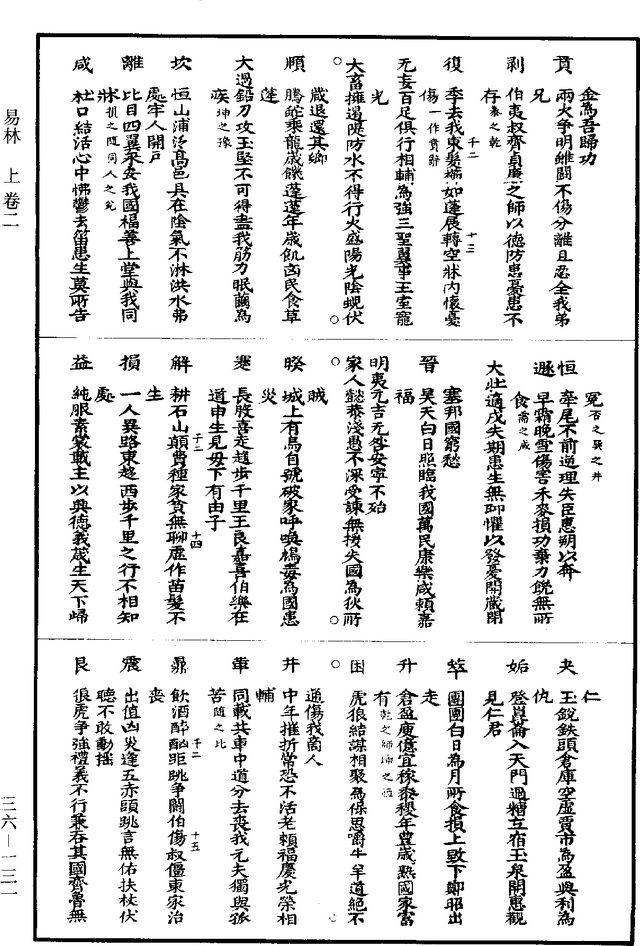 金為吾歸功
賁　兩火爭明雖鬭不傷分離且忍全我弟
兄
剥　伯夷叔齊貞廉之師以德防患憂患不
存泰之乾
復　季去我東髮櫛如蓬展轉空牀内懷憂
傷一作賁辭
无妄百足俱行相輔為強三聖翼事王室寵
光
大畜擁遏隄防水不得行火盛陽光陰蜺伏
藏退還其鄉
頤　騰蛇乘龍歲饑蓬蓬年歲飢凶民食草
蓬
大過鉛刀攻玉堅不可得盡我筋力胝繭為
疾坤之豫
坎　恒山浦泛高邑具在陰氣不淋洪水弗
處牢人開戶
離　比目四翼來安我國福善上堂與我同
牀損之隨同人之兊
咸　杜口結活心中怫鬱去留患生莫所告
冤否之巽之井
恒　牽尾不前逆理失臣惠朔以奔
遯　早霜晚雪傷害禾麥損功棄力饑無所
食需之咸
大壯適戍失期患生無聊懼以發憂開藏閉
塞邦國窮愁
晉　昊天白日照臨我國萬民康樂咸賴嘉
福
明夷元吉无咎安寧不殆
家人懿黍淺愚不深受諫無接失國為狄所
賊
睽　城上有烏自號破家呼喚鴆毒為國患
災
蹇　長股喜走趨步千里王良嘉喜伯樂在
道申生見母下有由子
解　耕石山顛費種家貧無聊虛作苗髮不
生
損　一人異路東趨西步千里之行不相知
處
益　純服素裳載主以興德義茂生天下歸
仁
夬　玉銳鉄頭倉庫空虛賈市為盈與利為
仇
姤　登崑崙入天門過糟丘宿玉泉開惠觀
見仁君
萃　團團白日為月所食損上毀下鄭昭出
走
升　倉盈庾億宜稼黍稷年豊歲熟國家富
有乾之師坤之恒
困　虎狼結謀相聚為保思嚼牛羊道絕不
通傷我商人
井　中年摧折常恐不活老賴福慶光榮相
輔
革　同載共車中道分去喪我元夫獨與孤
苦隨之比
鼎　飲酒醉酗距跳爭鬭伯傷叔僵東家治
喪
震　出值凶災逢五赤頭跳言無佑扶杖伏
聽不敢動搖
艮　很虎爭強禮義不行兼吞其國齊魯無
易林　上　卷二
三六—一三一